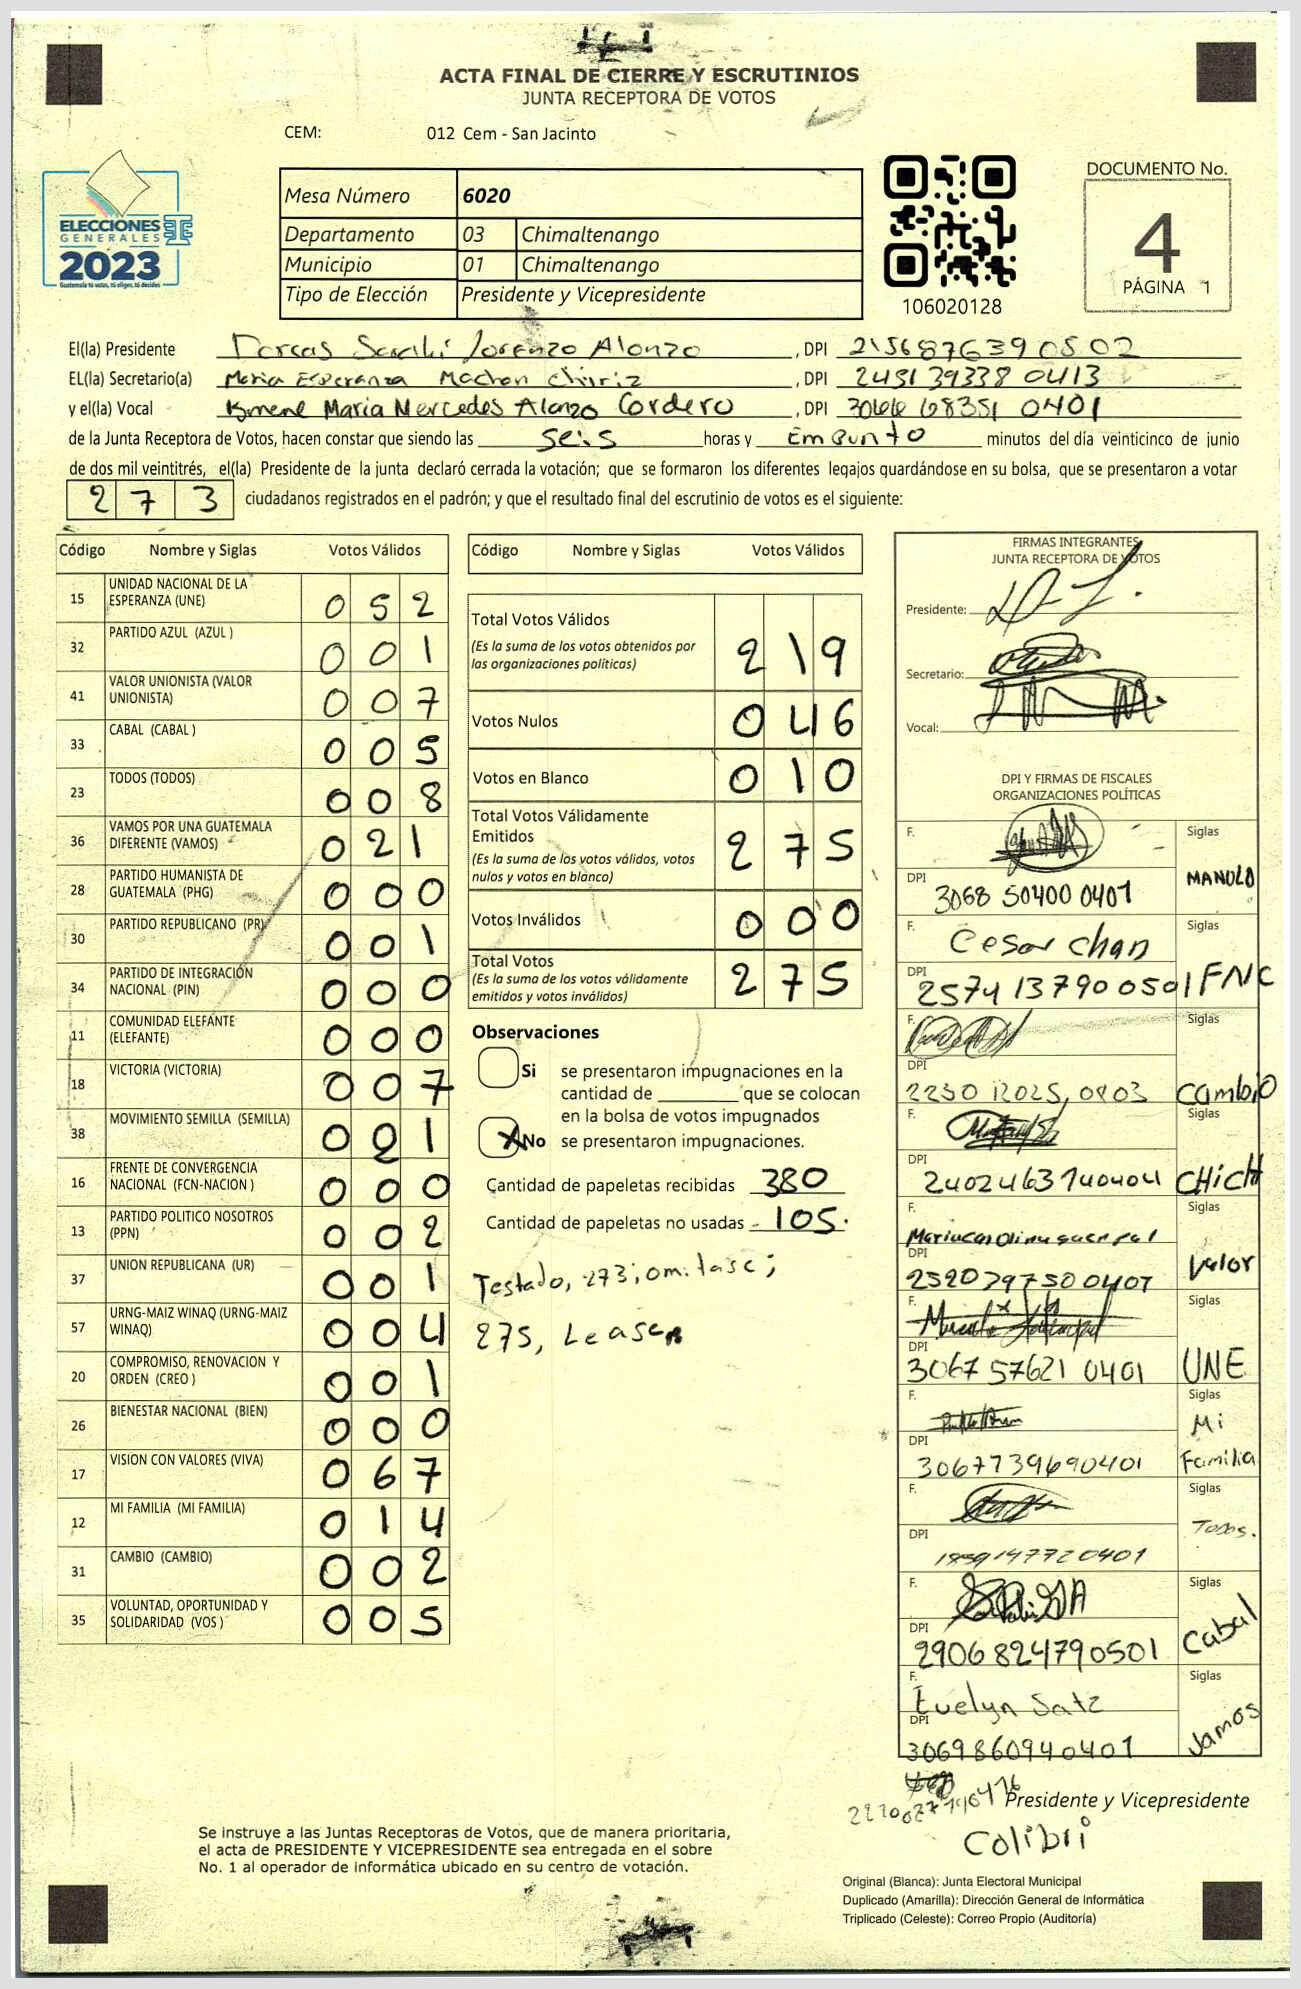 ACTA FINAL DE CIERRE Y ESCRUTINIOS
JUNTA RECEPTORA DE VOTOS
CEM: 012 Cem - San Jacinto
ELECCIONES
GENERALES
2023
Guatemala tú votas, tú eliges, tú decides
Mesa Número 6020
Departamento 03 Chimaltenango
Municipio 01 Chimaltenango
Tipo de Elección Presidente y Vicepresidente
106020128
DOCUMENTO No.
4
PÁGINA 1
El(la) Presidente Dorcas Sarahi Lorenzo Alonzo, DPI 2156876390502
EL(la) Secretario(a) Maria Esperanza Machan Chiriz, DPI 2451 39338 0413
y el(la) Vocal Ismene Maria Mercedes Alonzo Cordero, DPI 3066 68351 0401
de la Junta Receptora de Votos, hacen constar que siendo las seis horas y Empunto minutos del día veinticinco de junio
de dos mil veintitrés, el(la) Presidente de la junta declaró cerrada la votación; que se formaron los diferentes legajos guardándose en su bolsa, que se presentaron a votar
2 7 3 ciudadanos registrados en el padrón; y que el resultado final del escrutinio de votos es el siguiente:
Código Nombre y Siglas Votos Válidos
15 UNIDAD NACIONAL DE LA ESPERANZA (UNE) 0 5 2
32 PARTIDO AZUL (AZUL ) 0 0 1
41 VALOR UNIONISTA (VALOR UNIONISTA) 0 0 7
33 CABAL (CABAL ) 0 0 5
23 TODOS (TODOS) 0 0 8
36 VAMOS POR UNA GUATEMALA DIFERENTE (VAMOS) 0 2 1
28 PARTIDO HUMANISTA DE GUATEMALA (PHG) 0 0 0
30 PARTIDO REPUBLICANO (PR) 0 0 1
34 PARTIDO DE INTEGRACIÓN NACIONAL (PIN) 0 0 0
11 COMUNIDAD ELEFANTE (ELEFANTE) 0 0 0
18 VICTORIA (VICTORIA) 0 0 7
38 MOVIMIENTO SEMILLA (SEMILLA) 0 2 1
16 FRENTE DE CONVERGENCIA NACIONAL (FCN-NACION ) 0 0 0
13 PARTIDO POLITICO NOSOTROS (PPN) 0 0 2
37 UNION REPUBLICANA (UR) 0 0 1
57 URNG-MAIZ WINAQ (URNG-MAIZ WINAQ) 0 0 4
20 COMPROMISO, RENOVACION Y ORDEN (CREO ) 0 0 1
26 BIENESTAR NACIONAL (BIEN) 0 0 0
17 VISION CON VALORES (VIVA) 0 6 7
12 MI FAMILIA (MI FAMILIA) 0 1 4
31 CAMBIO (CAMBIO) 0 0 2
35 VOLUNTAD, OPORTUNIDAD Y SOLIDARIDAD (VOS ) 0 0 5
Código Nombre y Siglas Votos Válidos
Total Votos Válidos 2 1 9
(Es la suma de los votos obtenidos por
las organizaciones políticas)
Votos Nulos 0 4 6
Votos en Blanco 0 1 0
Total Votos Válidamente
Emitidos 2 7 5
(Es la suma de los votos válidos, votos
nulos y votos en blanco)
Votos Inválidos 0 0 0
Total Votos 2 7 5
(Es la suma de los votos válidamente
emitidos y votos inválidos)
Observaciones
Si se presentaron impugnaciones en la
cantidad de ________ que se colocan
en la bolsa de votos impugnados
X No se presentaron impugnaciones.
Cantidad de papeletas recibidas 380
Cantidad de papeletas no usadas - 105.
Testado, 273; omitase;
275, Lease
FIRMAS INTEGRANTES
JUNTA RECEPTORA DE VOTOS
Presidente:
Secretario:
Vocal:
DPI Y FIRMAS DE FISCALES
ORGANIZACIONES POLÍTICAS
F. Siglas
DPI 3068 50400 0401 MANULO
F. Cesar Chan Siglas
DPI 2574 13790 0501 FNC
F. Siglas
DPI 2250 12025, 0403 Cambio
F. Siglas
DPI 2402463140404 CHICH
F. Siglas
DPI 2520397500401 Valor
F. Siglas
DPI 3067 57621 0401 UNE
F. Siglas
DPI 3067739690401 Mi Familia
F. Siglas
DPI 1859147720401 Todos.
F. Siglas
DPI 2906824790501 Cabal
F. Evelyn Satz Siglas
DPI 3069860940401 Vamos
Presidente y Vicepresidente
Colibri
Se instruye a las Juntas Receptoras de Votos, que de manera prioritaria,
el acta de PRESIDENTE Y VICEPRESIDENTE sea entregada en el sobre
No. 1 al operador de informática ubicado en su centro de votación.
Original (Blanca): Junta Electoral Municipal
Duplicado (Amarilla): Dirección General de Informática
Triplicado (Celeste): Correo Propio (Auditoría)